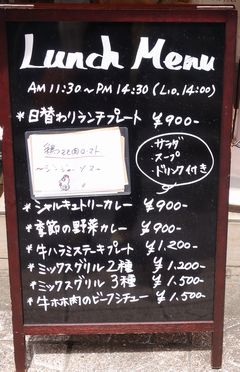 Lunch Menu
AM 11:30 ~ PM 14:30 (L.O. 14:00)
*日替わりランチプレート ¥900-
鶏もも肉ロースト
・サラダ
・スープ
・ドリンク付き
*シャルキュトリーカレー ¥900-
*季節の野菜カレー ¥900-
*牛ハラミステーキプレート ¥1.200-
*ミックスグリル2種 ¥1.200-
*ミックスグリル 3種 ¥1.500-
*牛ホホ肉のビーフシチュー ¥1.500-